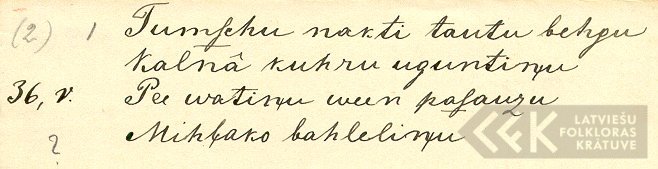 (2) 1 Tumſchu nakti tautu behgu
Kalnâ kuhru uguntiņu
36, v. Pee watiņu ween paſauzu
Mihļako bahleliņu
?
LATVIEŠU
FOLKLORAS
KRĀTUVE